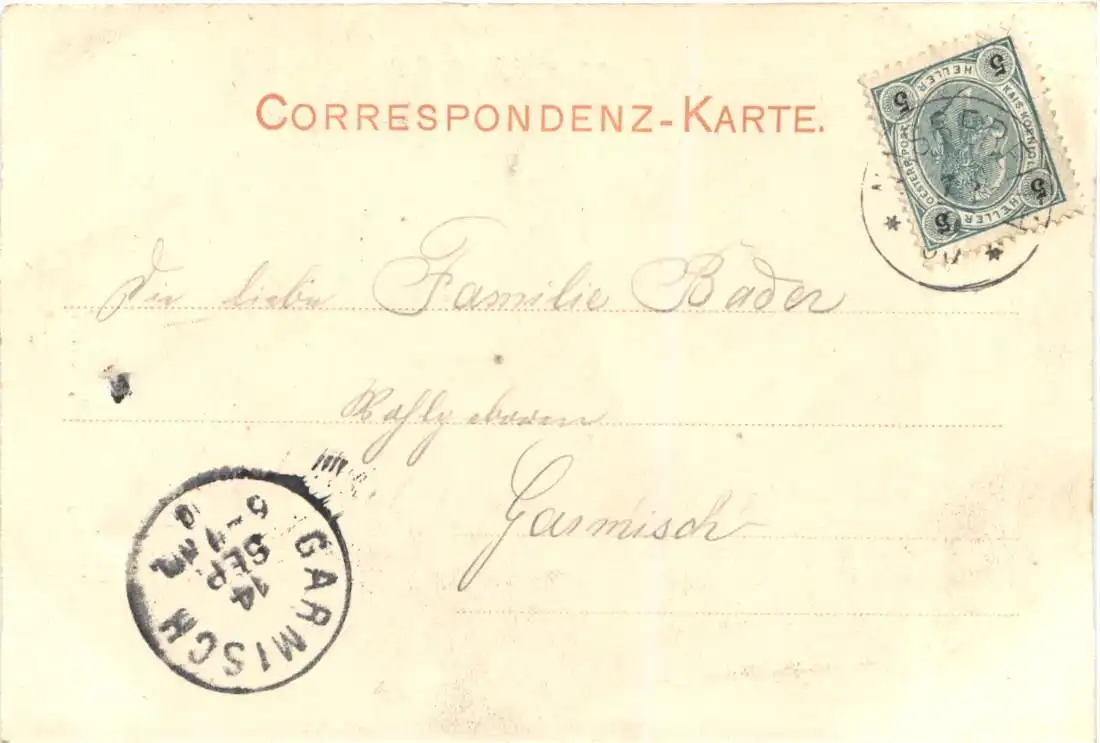 CORRESPONDENZ-KARTE.
5 HELLER 5
KAIS. KÖNIGL.
OESTERR. POST
5 HELLER 5
Die liebe Familie Bader
Wohlgeboren
Garmisch
GARMISCH
14
SEP